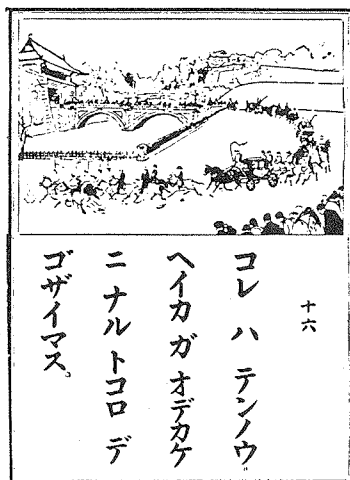 十六
コレ ハ テンノウ
ヘイカ ガ オデカケ
ニ ナル トコロ デ
ゴザイマス。